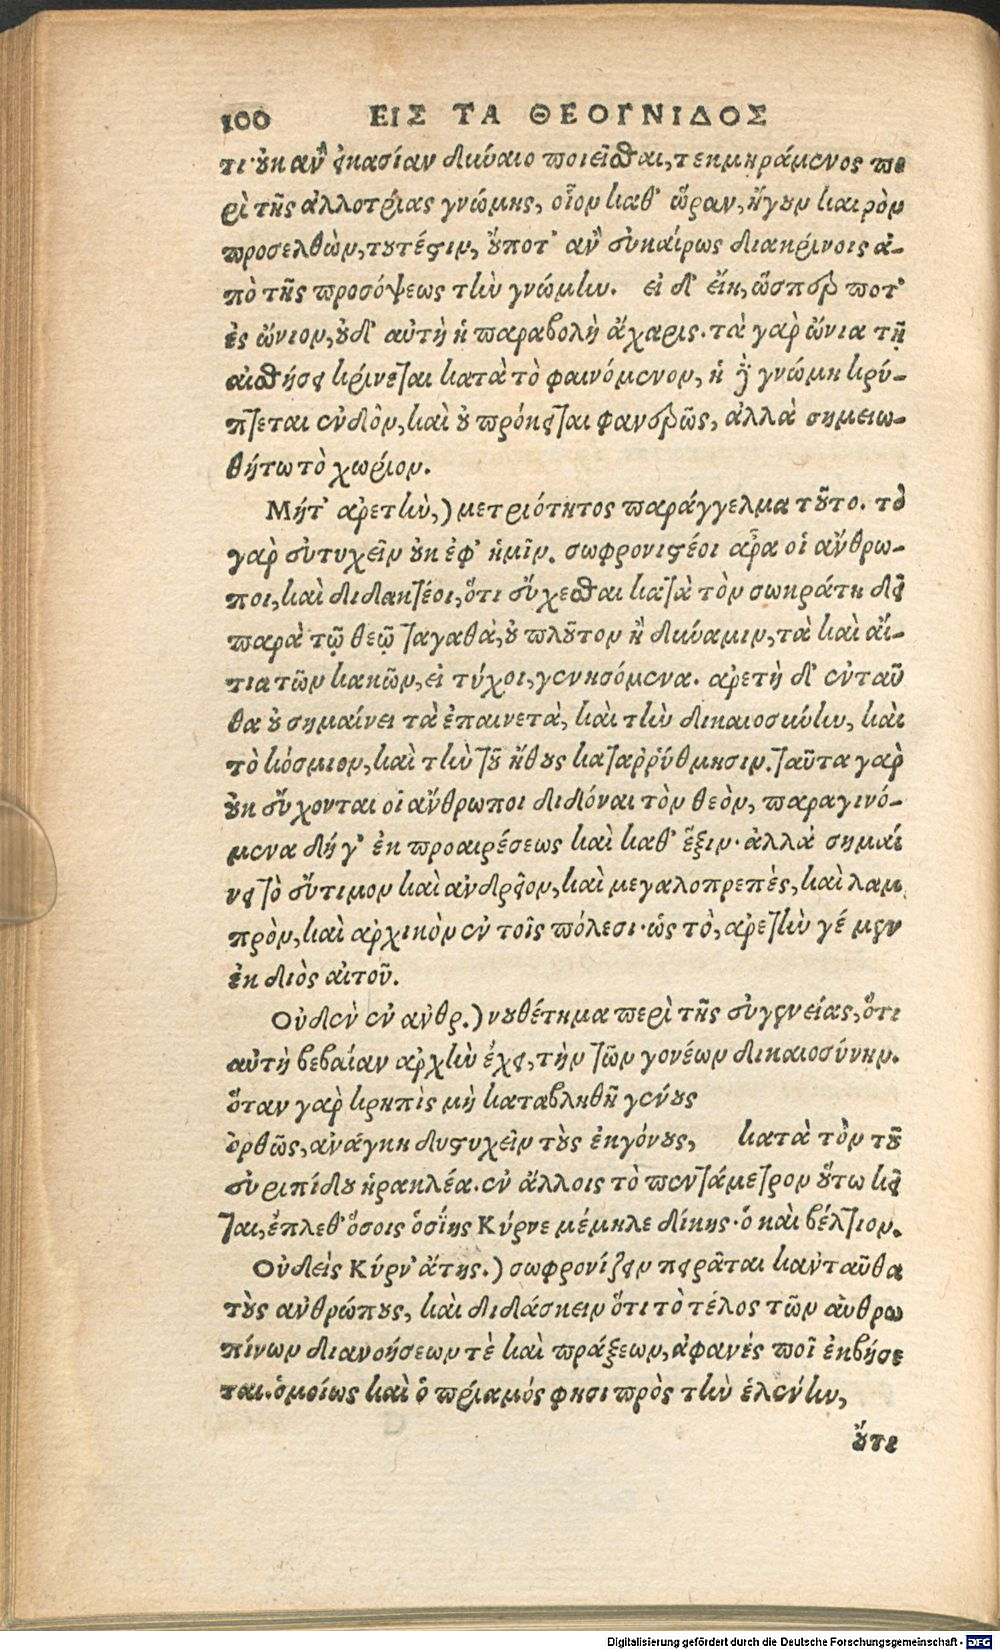 100 ΕΙΣ ΤΑ ΘΕΟΓΝΙΔΟΣ
τι· οὐκ ἂν εἰκασίαν δύναιο ποιεῖσθαι, τεκμηράμενος πε
ρὶ τῆς ἀλλοτρίας γνώμης, οἷον καθ' ὥραν, ἤγουν καιρὸν
προσελθὼν, τουτέστιν, οὔποτ' ἂν εὐκαίρως διακρίνοις ἀ-
πὸ τῆς προσόψεως τὴν γνώμην. εἰ δ' εἴη, ὥσπερ ποτ'
ἐς ὤνιον, οὐδ' αὐτὴ ἡ παραβολὴ ἄχαρις. τὰ γὰρ ὤνια τῇ
αἰσθήσει κρίνεται κατὰ τὸ φαινόμενον, ἡ δὲ γνώμη κρύ-
πτεται ἔνδον, καὶ οὐ πρόκειται φανερῶς, ἀλλὰ σημειω-
θήτω τὸ χωρίον.
Μήτ' ἀρετὴν,) μετριότητος παράγγελμα τοῦτο. τὸ
γὰρ εὐτυχεῖν οὐκ ἐφ' ἡμῖν. σωφρονιστέοι ἆρα οἱ ἄνθρω-
ποι, καὶ διδακτέοι, ὅτι εὔχεσθαι κατὰ τὸν σωκράτη δεῖ
παρὰ τῷ θεῷ τἀγαθὰ, οὐ πλοῦτον ἢ δύναμιν, τὰ καὶ αἴ-
τια τῶν κακῶν, εἰ τύχοι, γενησόμενα. ἀρετὴ δ' ἐνταῦ
θα οὐ σημαίνει τὰ ἐπαινετὰ, καὶ τὴν δικαιοσύνην, καὶ
τὸ κόσμιον, καὶ τὴν τοῦ ἤθους καταῤῥύθμησιν. ταῦτα γὰρ
οὐκ εὔχονται οἱ ἄνθρωποι διδόναι τὸν θεὸν, παραγινό-
μενα δή γ' ἐκ προαιρέσεως καὶ καθ' ἕξιν· ἀλλὰ σημαί
νει τὸ ἔντιμον καὶ ἀνδρεῖον, καὶ μεγαλοπρεπὲς, καὶ λαμ
πρὸν, καὶ ἀρχικὸν ἐν τοῖς πόλεσι· ὡς τὸ, ἀρετὴν γέ μεν
ἐκ διὸς αἰτοῦ.
Οὐδὲν ἐν ἀνθρ.) νουθέτημα περὶ τῆς εὐγενείας, ὅτι
αὐτὴ βεβαίαν ἀρχὴν ἔχει, τὴν τῶν γονέων δικαιοσύνην.
ὅταν γὰρ κρηπὶς μὴ καταβληθῇ γένους
ὀρθῶς, ἀνάγκη δυστυχεῖν τοὺς ἐκγόνους, κατὰ τὸν τοῦ
εὐριπίδου ἡρακλέα. ἐν ἄλλοις τὸ πεντάμετρον οὕτω κεῖ
ται, ἔπλεθ' ὅσοις ὁσίης Κύρνε μέμηλε δίκης· ὃ καὶ βέλτιον.
Οὐδεὶς Κύρν' ἄτης.) σωφρονίζειν πειρᾶται κἀνταῦθα
τοὺς ἀνθρώπους, καὶ διδάσκειν ὅτι τὸ τέλος τῶν ἀνθρω
πίνων διανοήσεων τὲ καὶ πράξεων, ἀφανὲς ποῖ ἐκβήσε
ται. ὁμοίως καὶ ὁ πρίαμός φησι πρὸς τὴν ἑλένην,
οὔτε
Digitalisierung gefördert durch die Deutsche Forschungsgemeinschaft - DFG